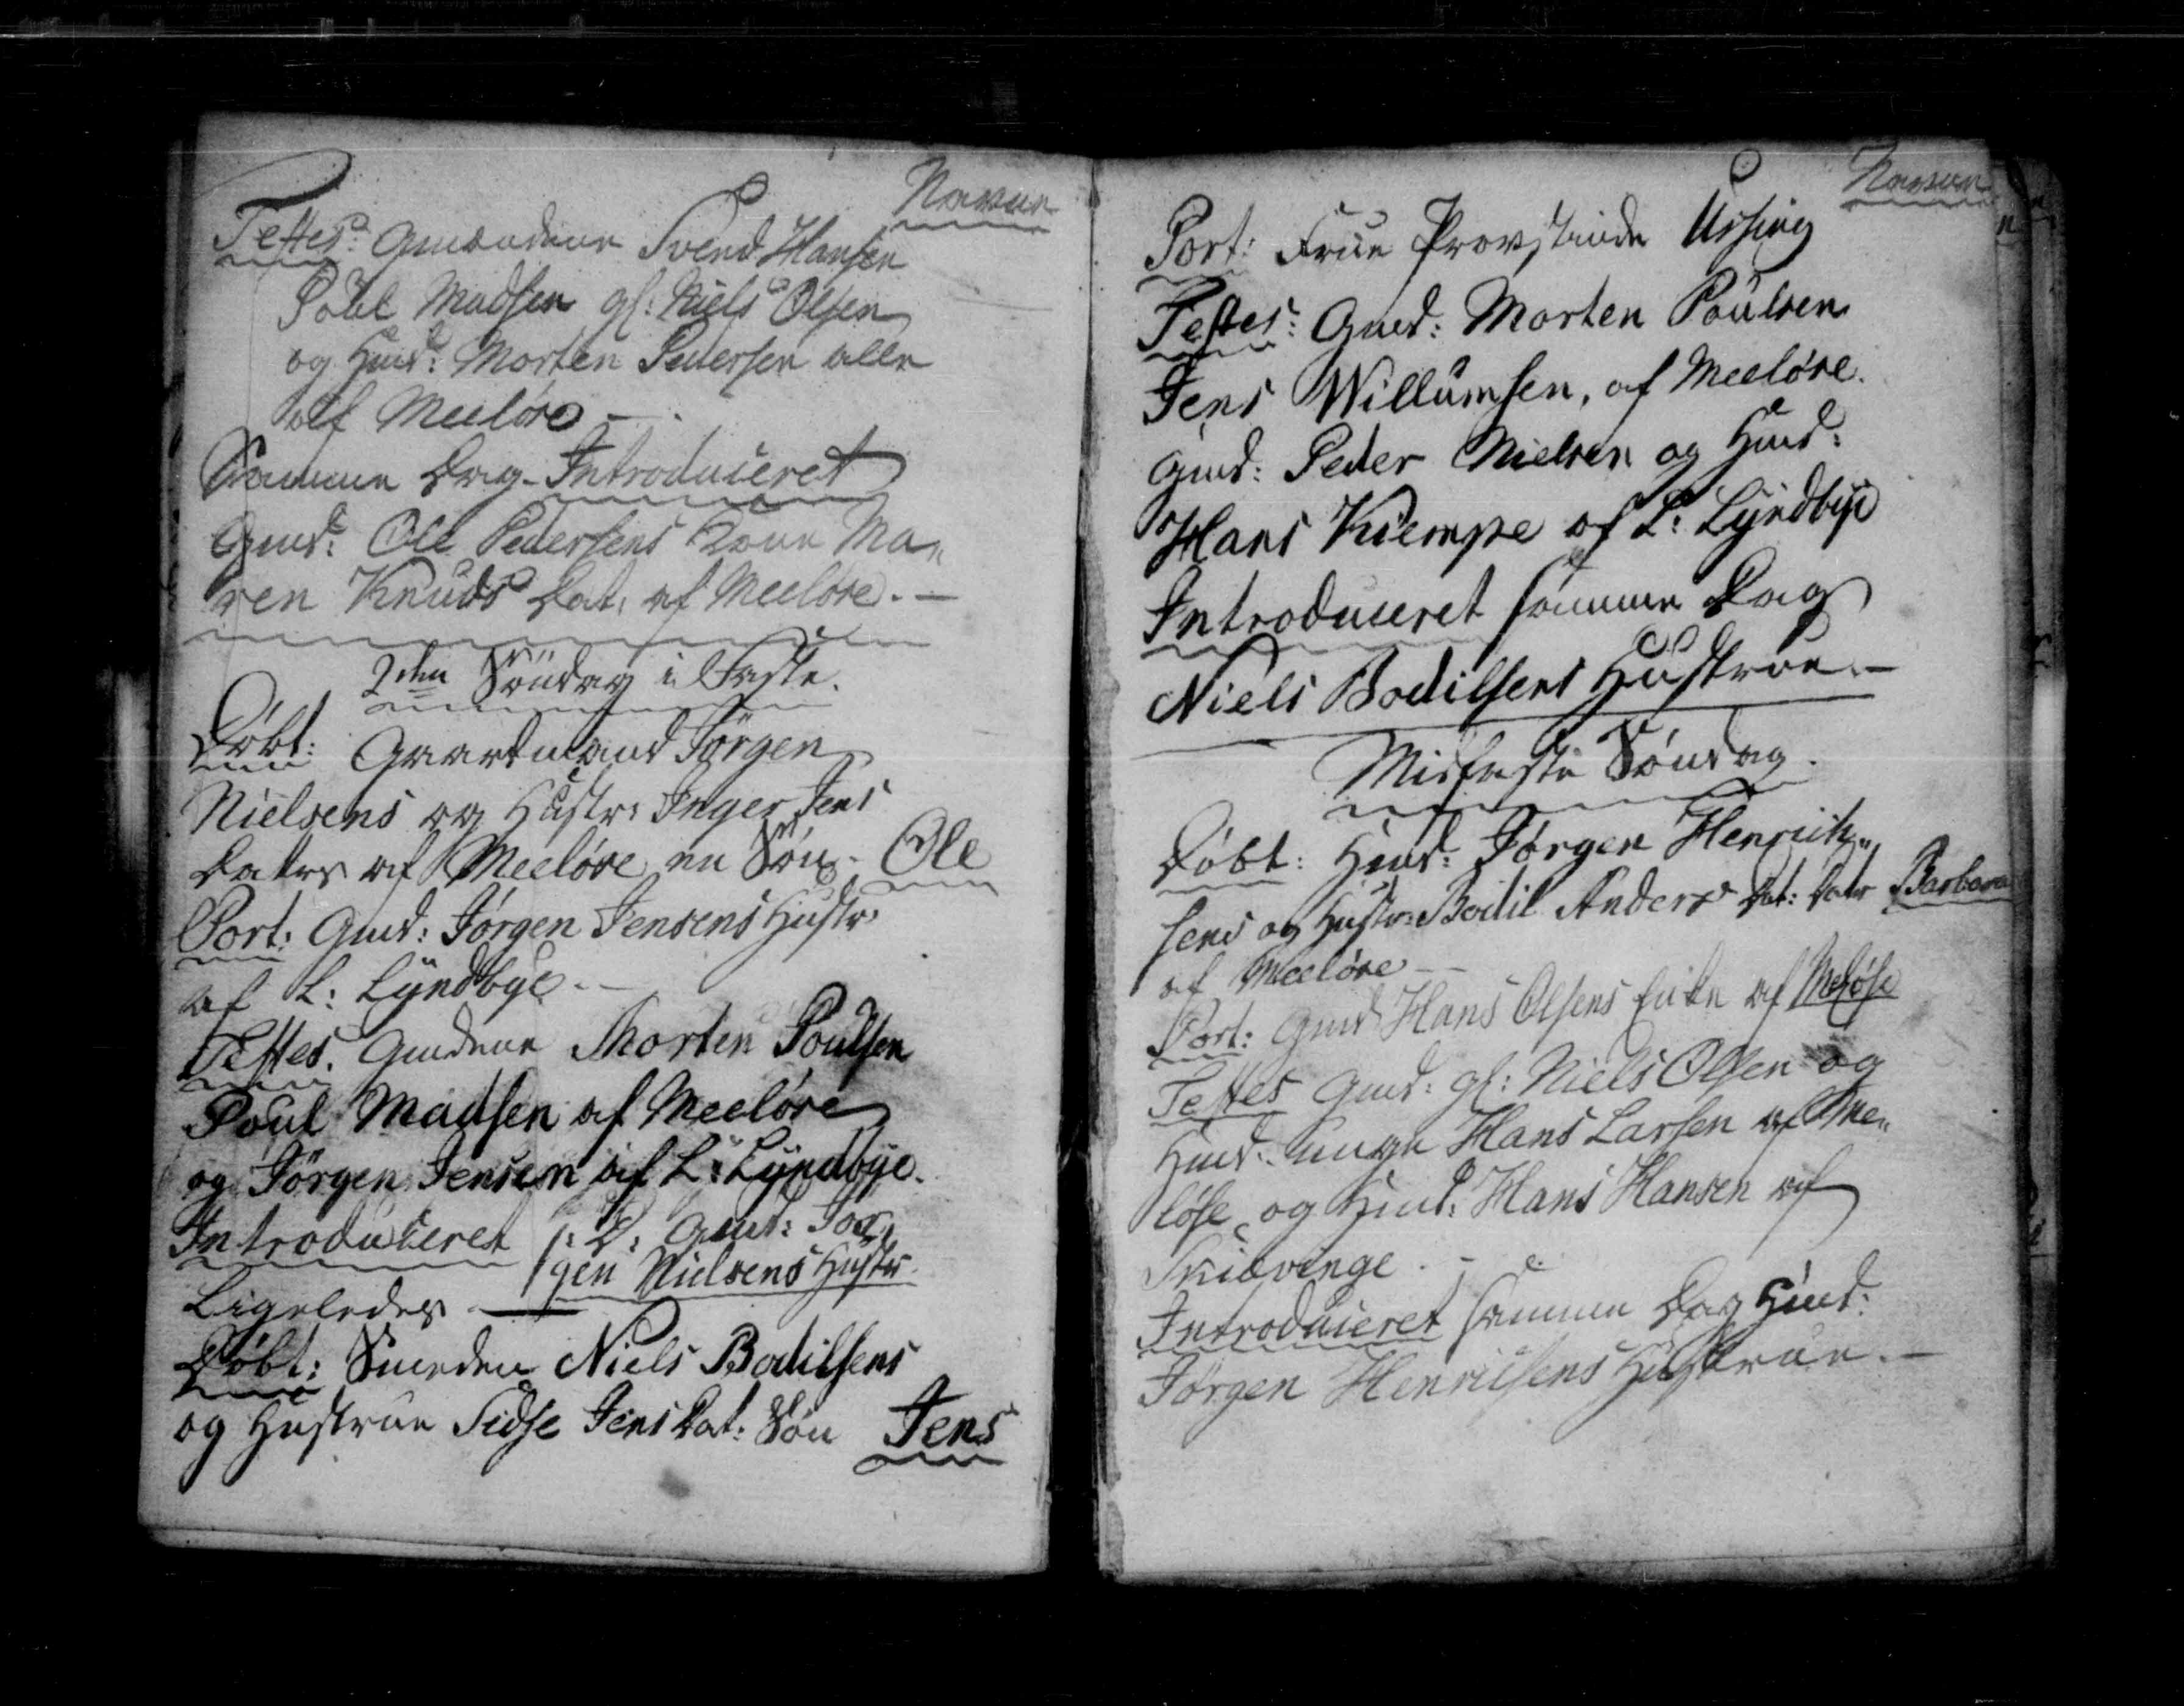 Navne
Testes: Gmændene Svend Hansen
Poul Madsen gl: Niels Olsen
og Hmd: Morten Pedersen alle
af Meeløse -.
Samme Dag Introduceret
Gmd: Ole Pedersens Kone Ma„
ren Knuds Dat. af Meeløse. -
2den Søndag i Faste.
Døbt: Gaardmand Jørgen
Nielsens og Hustr: Inger Jens
Daters af Meeløse en Søn. Ole
Port: Gmd: Jørgen Jensens Hustr:
af L: Lyndbye. -
Testes. Gmdene Morten Poulsen
Poul Madsen af Meeløse
og Jørgen Jensen af L: Lyndbye.
Introduceret s: D: Gmd: Jør„
gen Nielsens Hustr.
Ligeledes
Døbt: Smeden Niels Bodilsens
og Hustrue Sidse Jens Dat: Søn Jens
Navne
Port: Frue Provstinde Ussing
Testes: Gmd: Morten Poulsen
Jens Willumsen, af Meeløse.
Gmd: Peder Nielsen og Hmd:
Hans Kiempe af L: Lyndbye
Introduceret samme Dag
Niels Bodilsens Hustrue. -
Midfaste Søndag.
Døbt: Hmd: Jørgen Henrich„
sens og Hustr: Bodil Anders Dat: Datr Barbara
af Meeløse -
Port: Gmd Hans Olsens af Meløse
Testes Gmd: gl: Niels Olsen og
Hmd: unge Hans Larsen af Me„
løse og Hmd: Hans Hansen af
Skiævinge. -
Introduceret samme Dag Hmd:
Jørgen Henricsens Hustrue. -